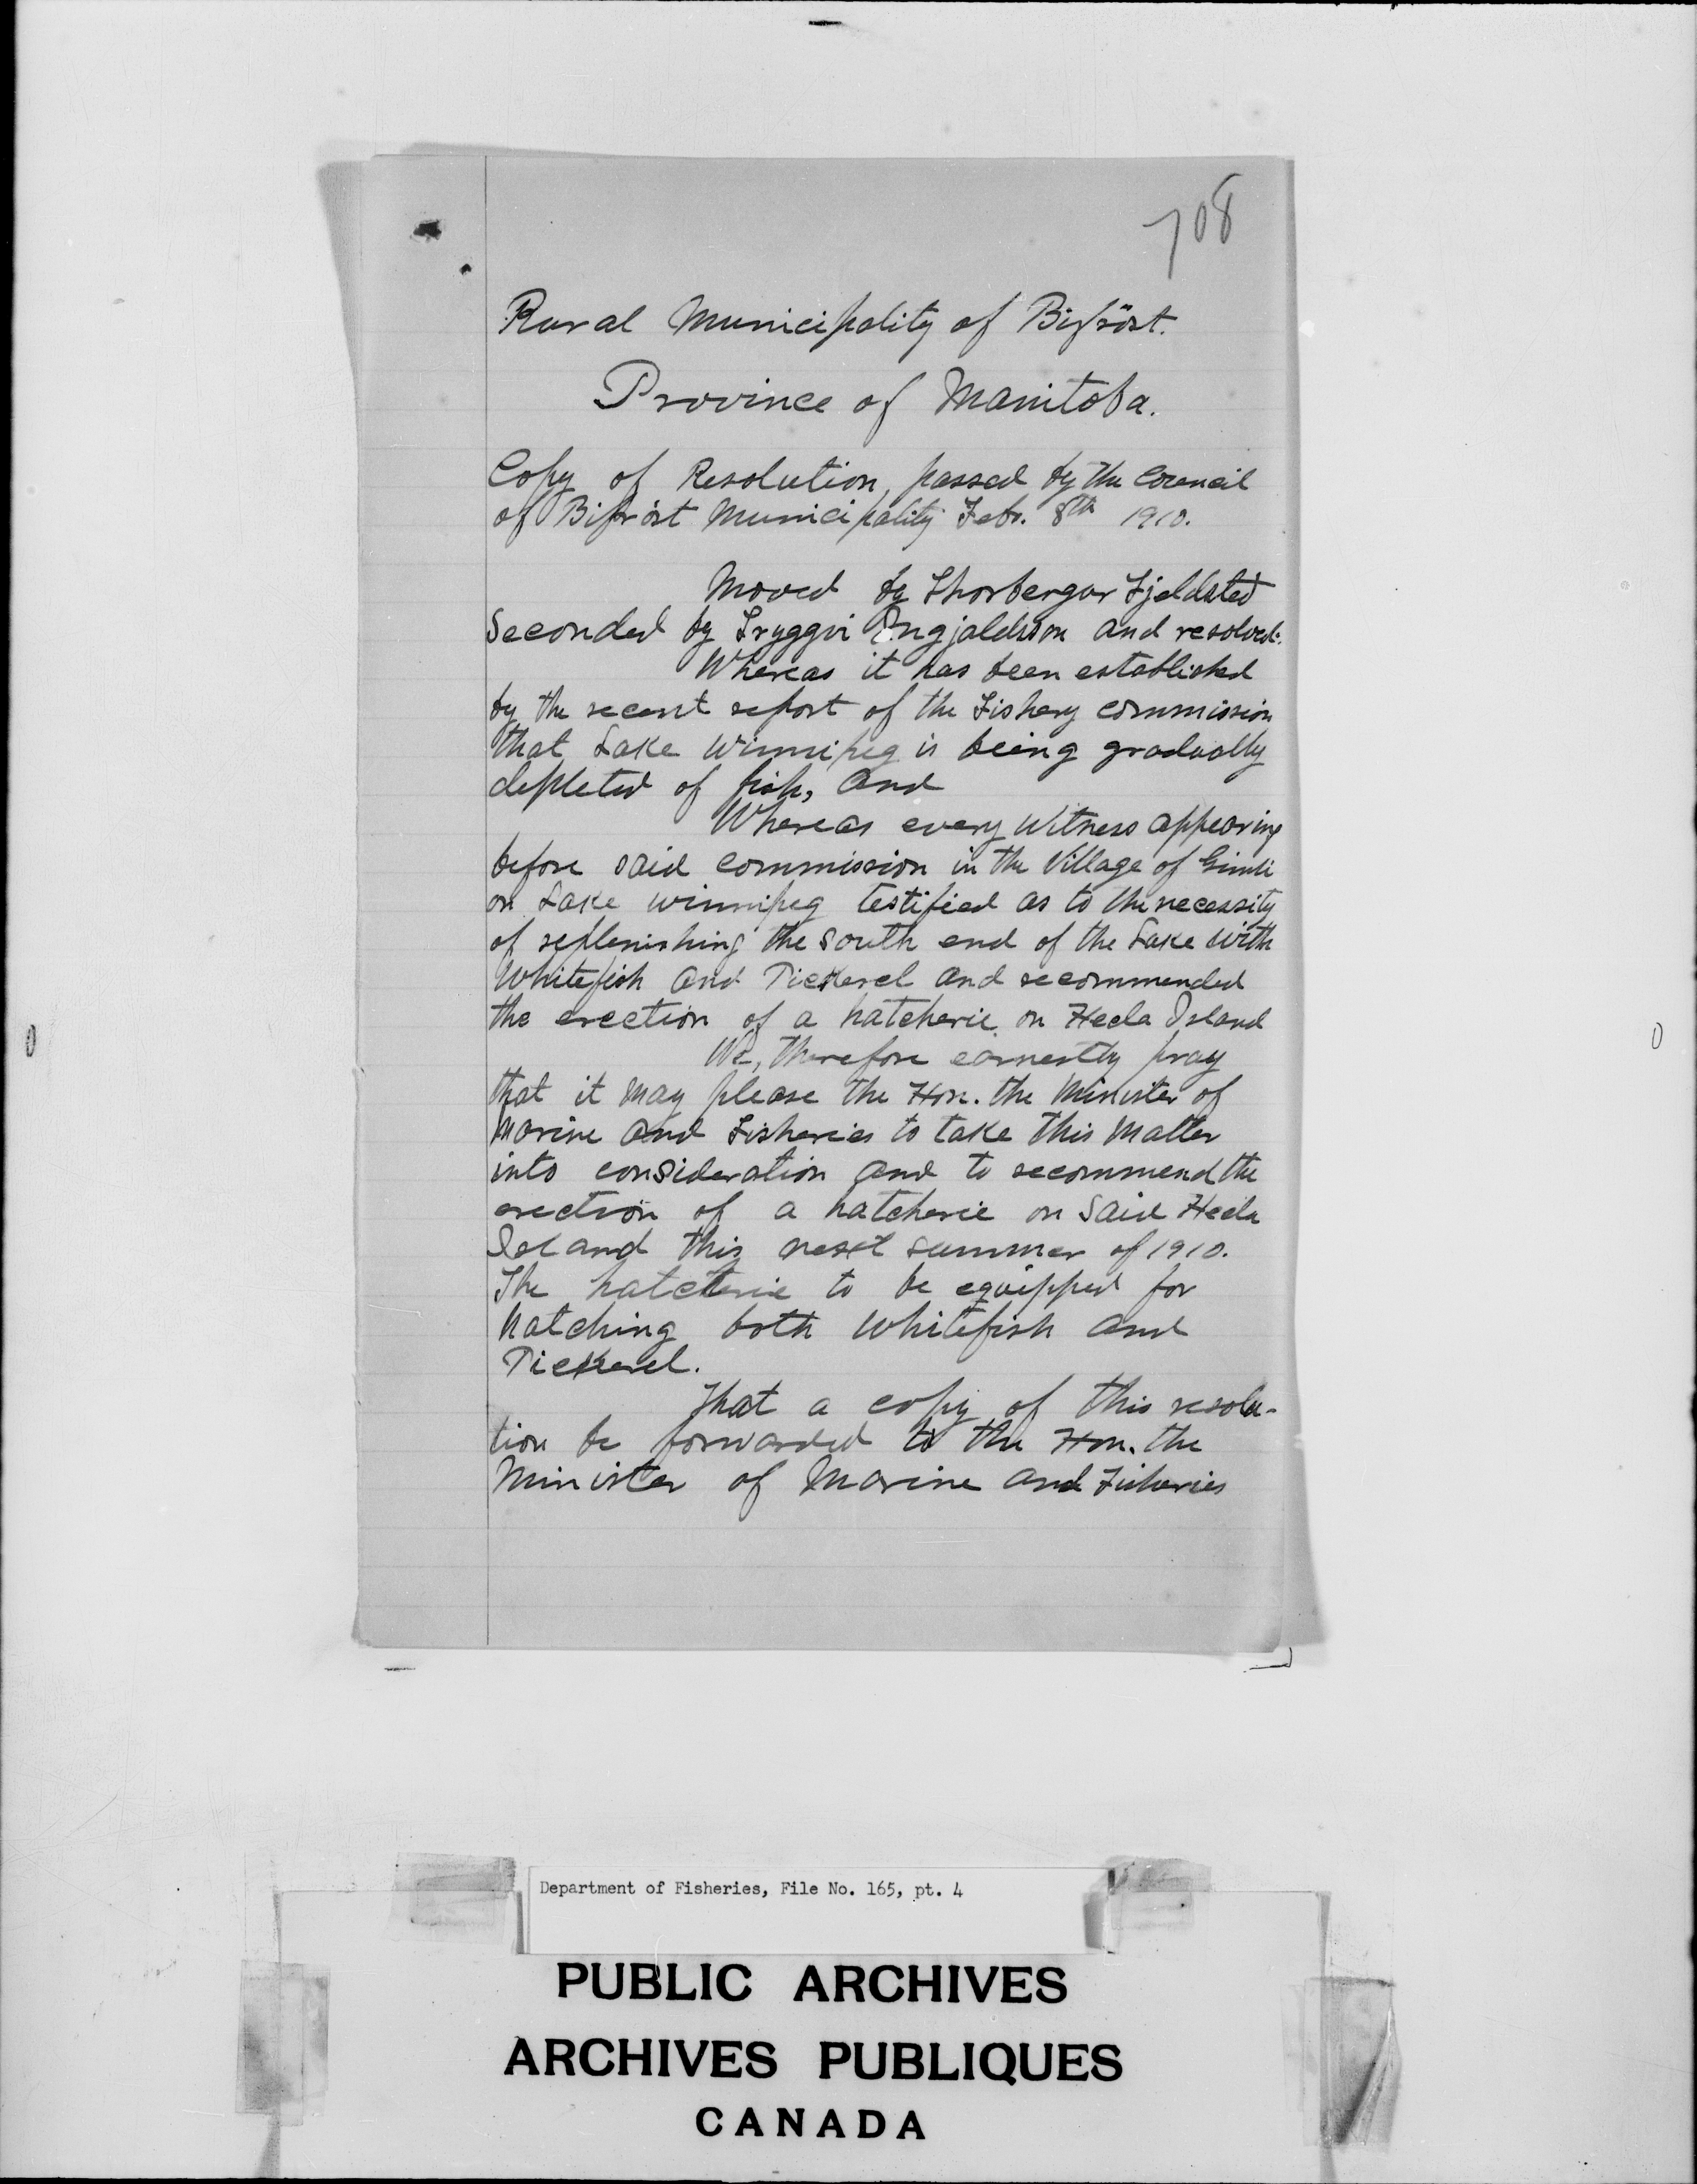 708
Rural Municipality of Bifröst.
Province of Manitoba.
Copy of Resolution, passed by the Council
of Bifröst Municipality Febr. 8th 1910.
Moved by Thorbergur Fjeldsted
Seconded by Tryggvi Ingjaldsson and resolved:
Whereas it has been established
by the recent report of the Fishery commission
that Lake Winnipeg is being gradually
depleted of fish, and
Whereas every witness appearing
before said commission in the Village of Gimli
on Lake Winnipeg testified as to the necessity
of replenishing the south end of the Lake with
Whitefish and Pickerel and recommended
the erection of a hatcherie on Hecla Island
We, therefore earnestly pray
that it may please the Hon. the Minister of
Marine and Fisheries to take this matter
into consideration and to recommend the
erection of a hatcherie on said Hecla
Island this next summer of 1910.
The hatcherie to be equipped for
hatching both Whitefish and
Pickerel.
That a copy of this resolu-
tion be forwarded to the Hon. the
Minister of Marine and Fisheries
Department of Fisheries, File No. 165, pt. 4
PUBLIC ARCHIVES
ARCHIVES PUBLIQUES
CANADA